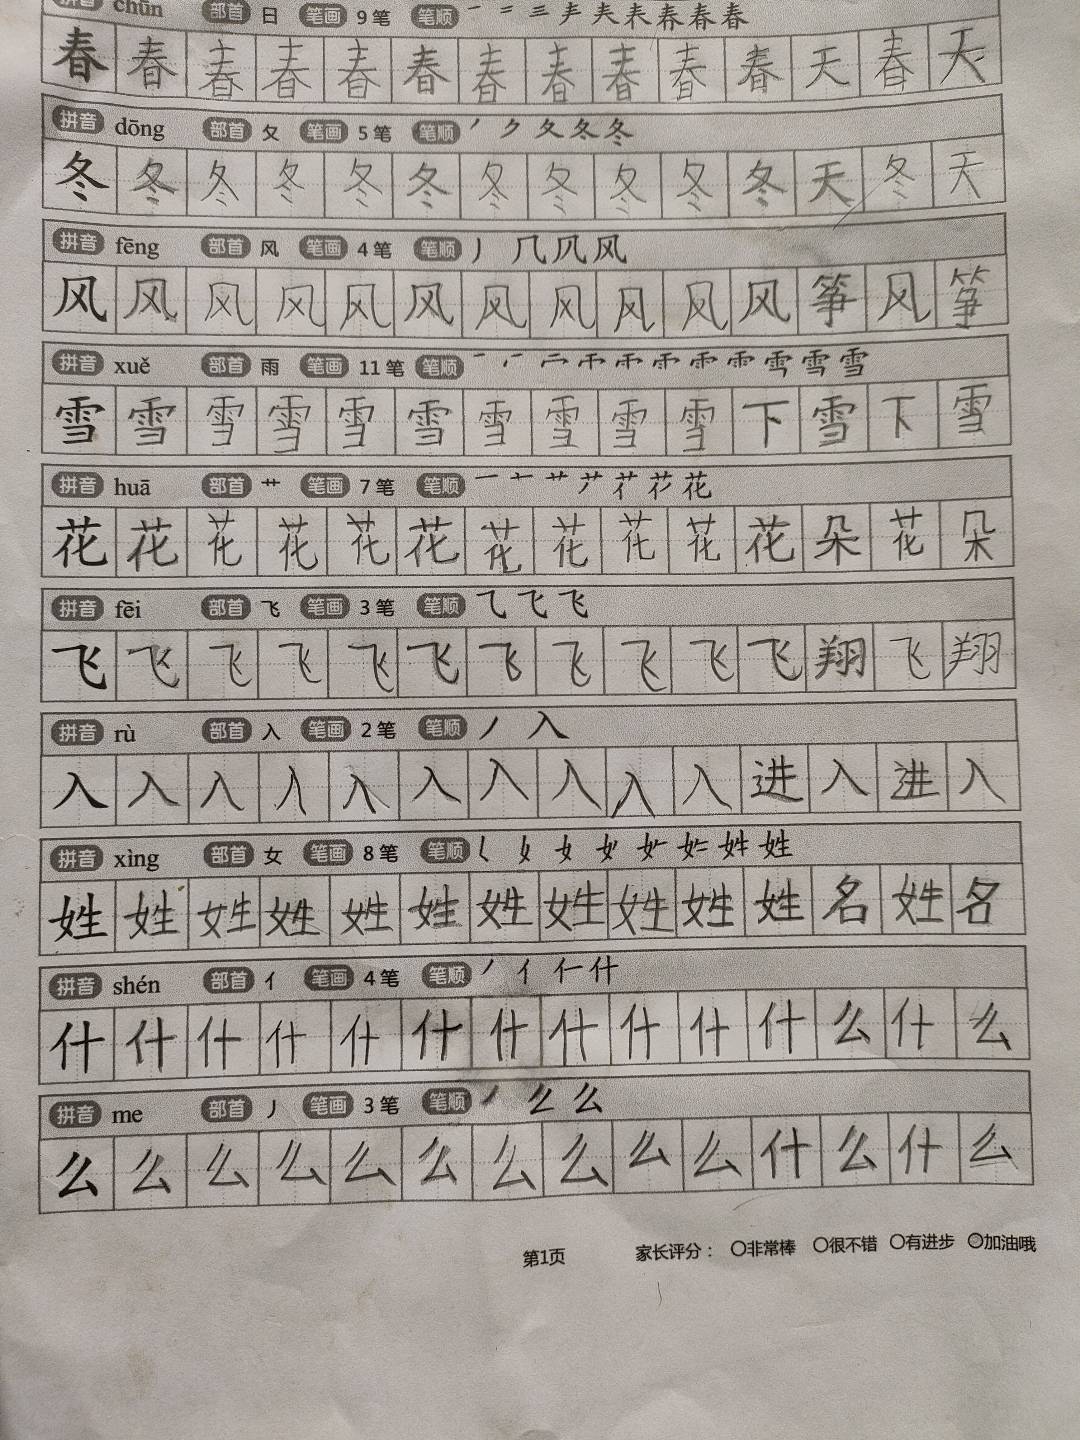 拼音 chūn 部首 日 笔画 9 笔 笔顺 一 二 三 𡗗 春 春 春
春 春 春 春 春 春 春 春 春 春 春 天 春 天
拼音 dōng 部首 夂 笔画 5 笔 笔顺 丿 ク 夂 冬 冬
冬 冬 冬 冬 冬 冬 冬 冬 冬 冬 冬 天 冬 天
拼音 fēng 部首 风 笔画 4 笔 笔顺 丿 几 凤 风
风 风 风 风 风 风 风 风 风 风 风 筝 风 筝
拼音 xuě 部首 雨 笔画 11 笔 笔顺 一 雪 雪 雪
雪 雪 雪 雪 雪 雪 雪 雪 雪 雪 下 雪 下 雪
拼音 huā 部首 艹 笔画 7 笔 笔顺 一 十 艹 花
花 花 花 花 花 花 花 花 花 花 花 朵 花 朵
拼音 fēi 部首 飞 笔画 3 笔 笔顺 ⺄ 飞 飞
飞 飞 飞 飞 飞 飞 飞 飞 飞 飞 飞 翔 飞 翔
拼音 rù 部首 入 笔画 2 笔 笔顺 丿 入
入 入 入 入 入 入 入 入 入 入 进 入 进 入
拼音 xìng 部首 女 笔画 8 笔 笔顺 𡿨 女 女 姓 姓
姓 姓 姓 姓 姓 姓 姓 姓 姓 姓 姓 名 姓 名
拼音 shén 部首 亻 笔画 4 笔 笔顺 丿 亻 仁 什
什 什 什 什 什 什 什 什 什 什 什 么 什 么
拼音 me 部首 丿 笔画 3 笔 笔顺 丿 么 么
么 么 么 么 么 么 么 么 么 么 什 么 什 么
第1页 家长评分： ○非常棒 ○很不错 ○有进步 ○加油哦